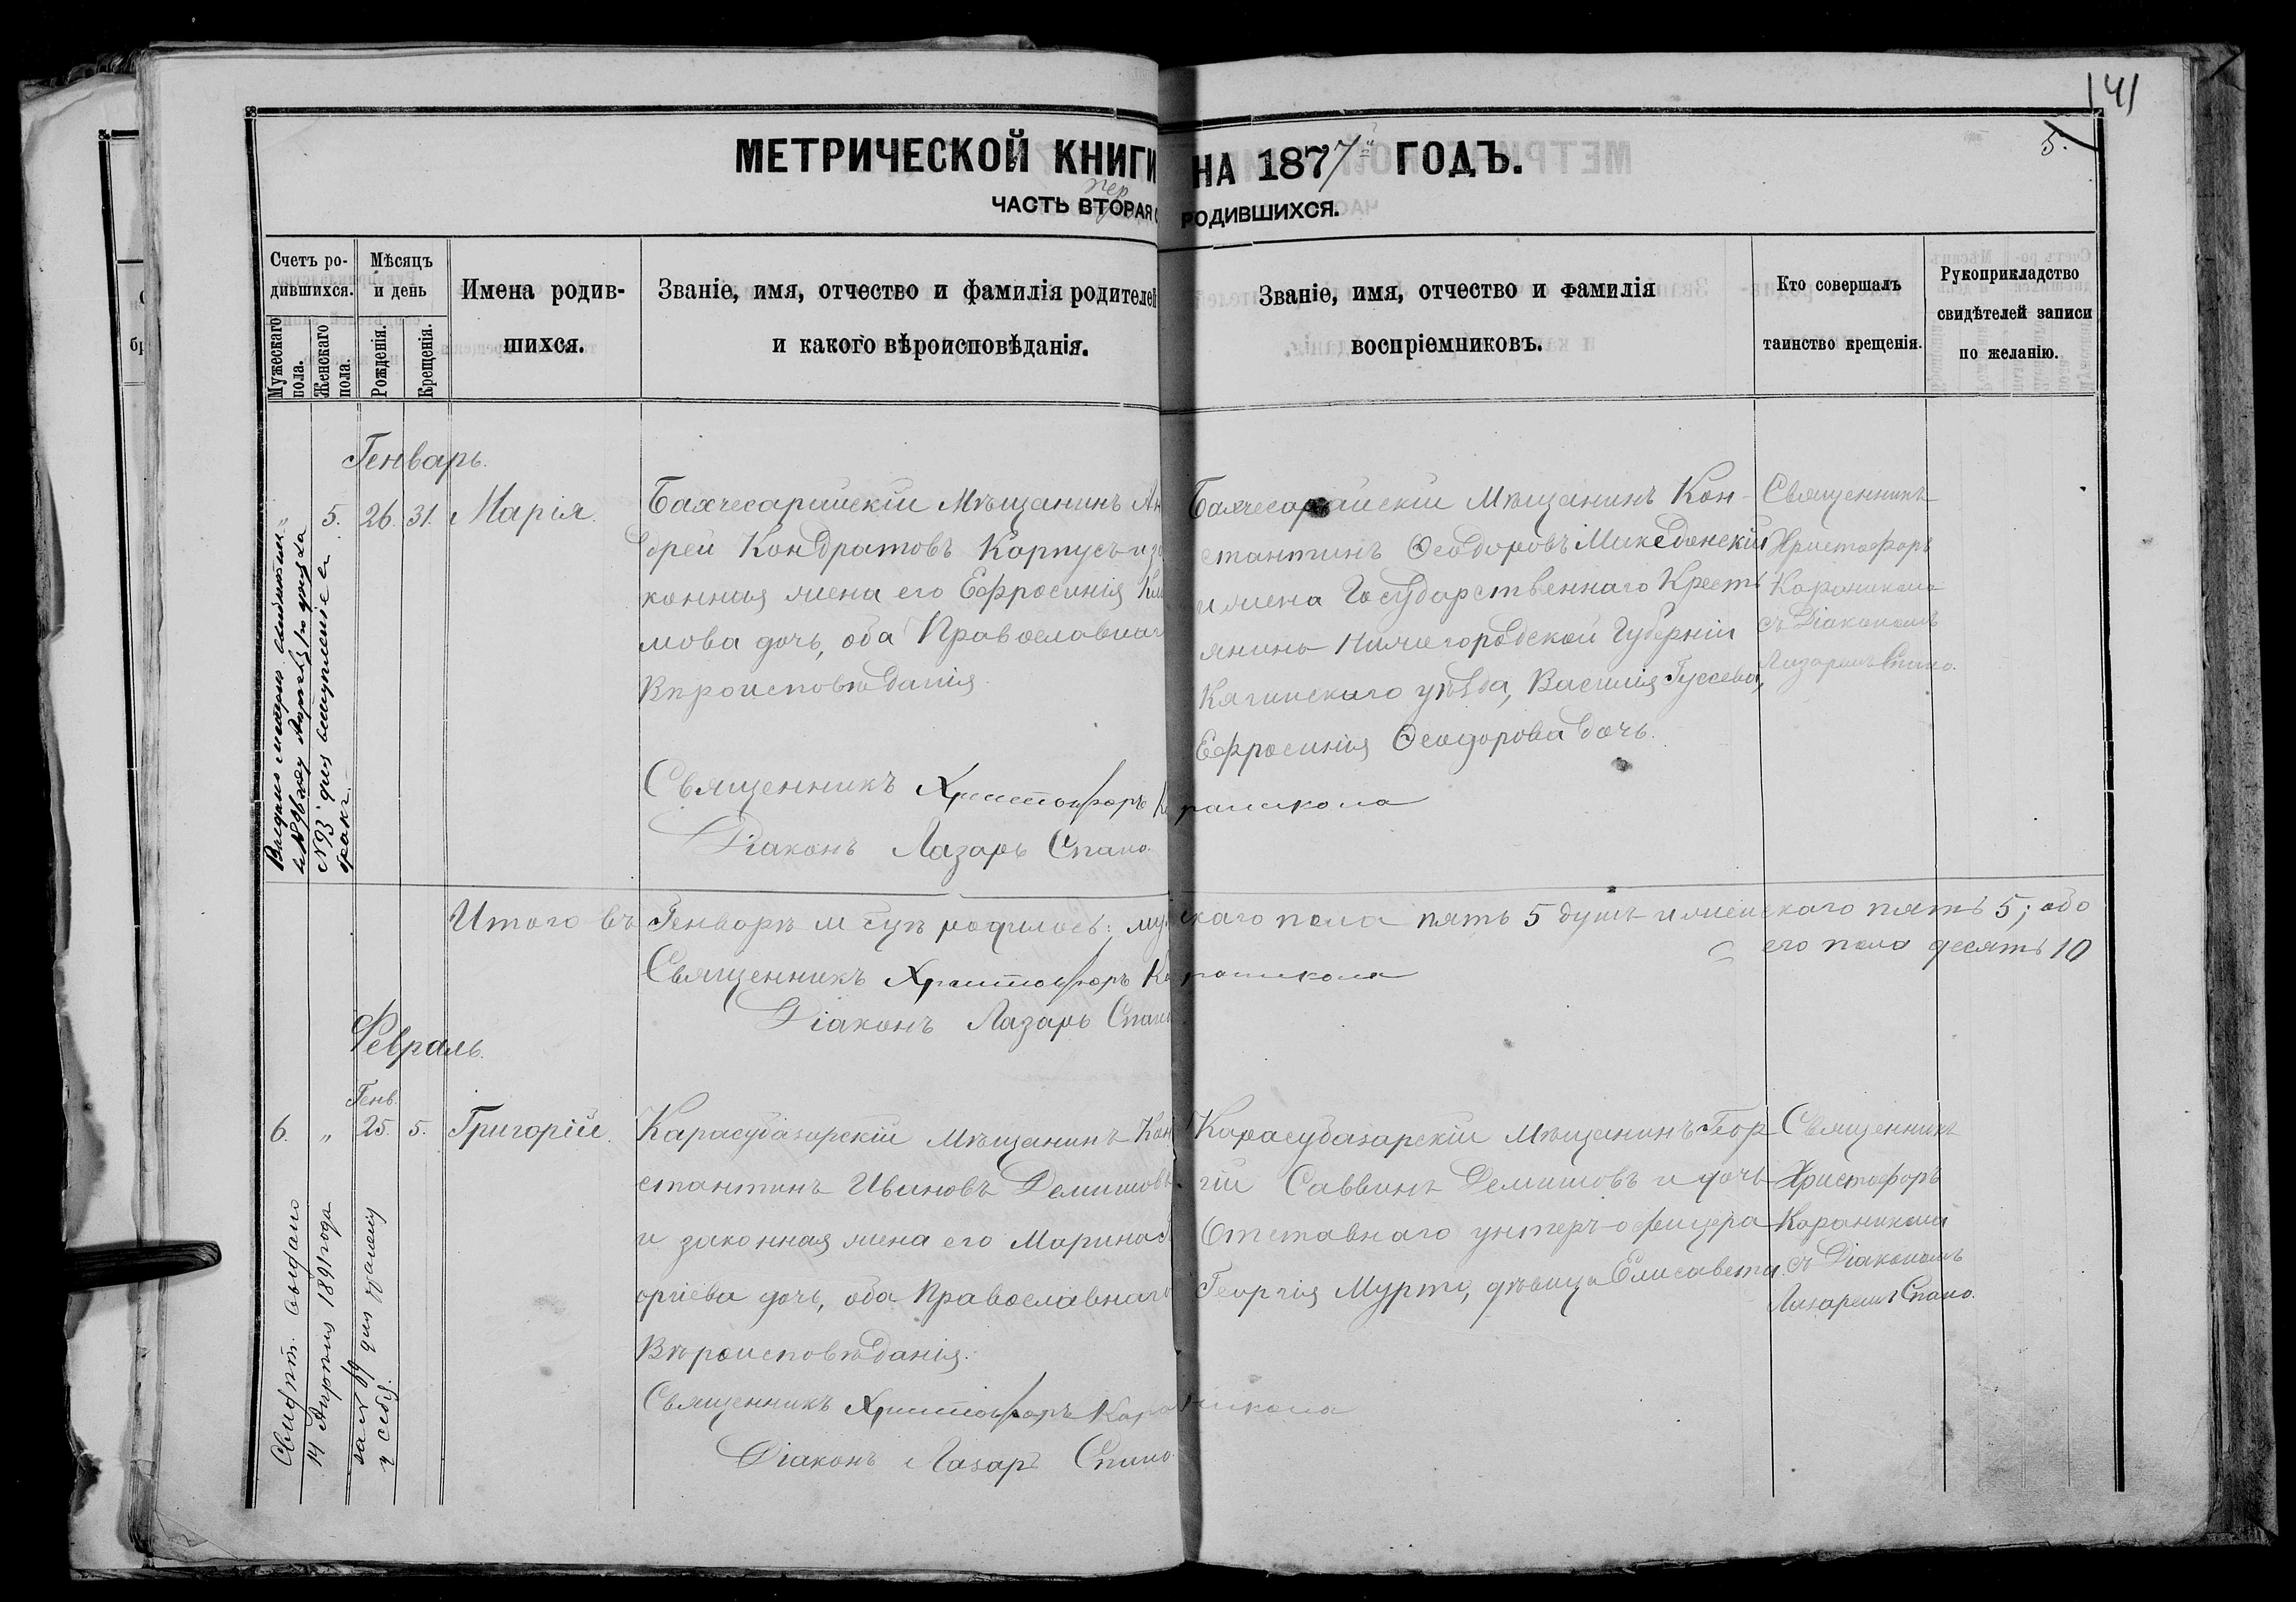 141
5.
МЕТРИЧЕСКОЙ КНИГИ НА 1877й ГОДЪ.
пер
ЧАСТЬ ВТОРАЯ О РОДИВШИХСЯ.
Счетъ родившихся.
Мужескаго пола.
Женскаго пола.
Мѣсяцъ и день
Рожденія.
Крещенія.
Имена родив-
шихся.
Званіе, имя, отчество и фамилія родителей
и какого вѣроисповѣданія.
Званіе, имя, отчество и фамилія
воспріемниковъ.
Кто совершалъ
таинство крещенія.
Рукоприкладство
свидѣтелей записи
по желанію.
Генварь.
5. 26. 31. Марія.
Бахчесарайскій Мѣщанинъ Ан
дрей Кондратовъ Корпусъ и за
конная жена его Ефросинія Кли
мова дочь, оба Православнаго
Вѣроисповѣданія.
Священникъ Христофоръ Караникола
Діаконъ Лазарь Спано.
Бахчесарайскій Мѣщанинъ Кон-
стантинъ Ѳеодоровъ Македонскій
и жена Государственнаго Кресть
янина Нижегородской Губерніи
Княгинскаго уѣзда, Василія Гусева,
Ефросинія Ѳеодорова дочь.
Священникъ
Христофоръ
Караникола
съ Діакономъ
Лазаремъ Спано.
№ 93 для вступленія въ
бракъ.
Итого въ Генварѣ м-цѣ родилось: мужскаго пола пять 5 душъ и женскаго пять 5; обо
его пола десять 10
Священникъ Христофоръ Караникола
Діаконъ Лазарь Спано
Февраль.
Генв.
6. " 25. 5. Григорій.
Карасубазарскій Мѣщанинъ Кон
стантинъ Ивановъ Демишовъ
и законная жена его Марина Ге
оргіева дочь, оба Православнаго
Вѣроисповѣданія.
Священникъ Христофоръ Караникола
Діаконъ Лазарь Спано.
Карасубазарскій Мѣщанинъ Геор
гій Саввинъ Демишовъ и дочь
Отставнаго унтеръ-офицера
Георгія Мурто, дѣвица Елисавета.
Священникъ
Христофоръ
Караникола
съ Діакономъ
Лазаремъ Спано.
Свидѣт. выдано
14 Апрѣля 1891 года
за № 89 для